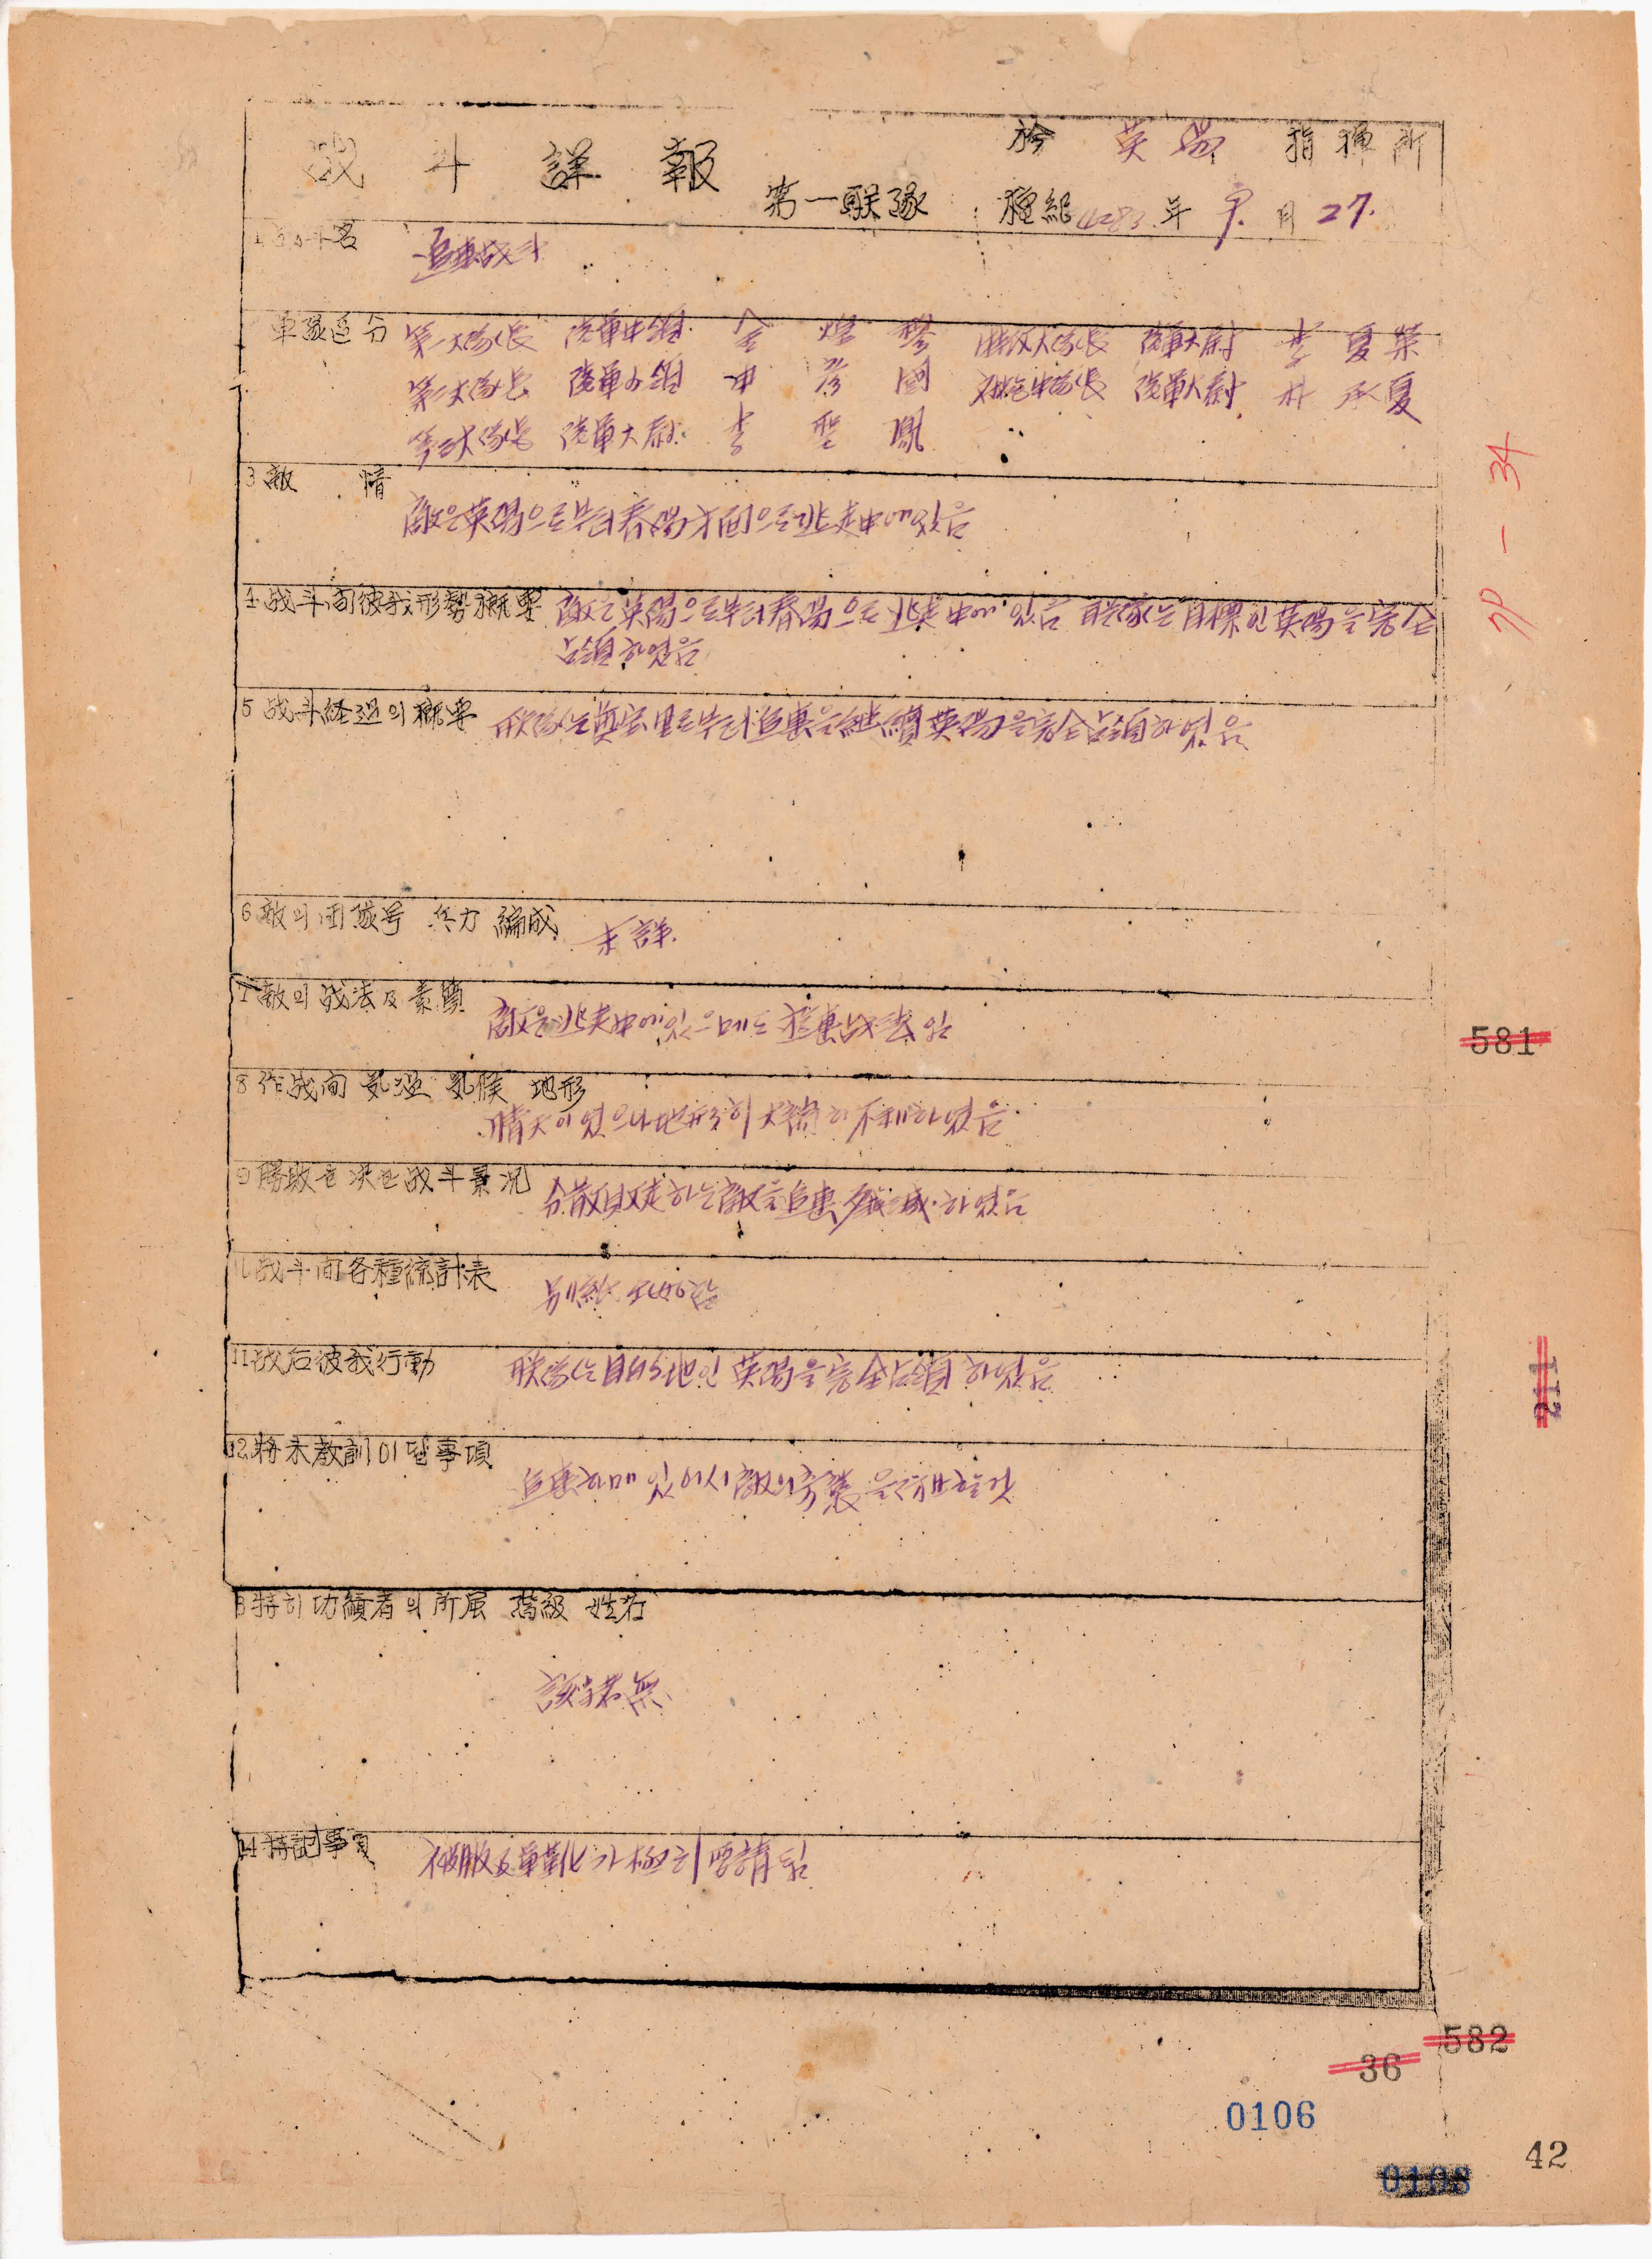 战斗詳報 第一联隊
於 英陽 指揮所
檀紀 4283 年 9 月 27.
1 战斗名 追擊战斗
軍隊区分 第一大隊長 陸軍中領 金 煌 철 附級大隊長 陸軍大尉 李 夏榮
第二大隊長 陸軍少領 申 彦 國 对戰車砲中隊長 陸軍大尉 朴 承夏
第三大隊長 陸軍大尉 李 聖 鳳
3 敵 情
敵은 英陽으로부터 春陽方面으로 逃走中에 있음
4 战斗前彼我形勢概要 敵은 英陽으로부터 春陽으로 逃走中에 있음 联隊는 目標인 英陽을 完全
占領하였음
5 战斗経過의 概要 联隊는 로부터 追擊을 継續 英陽을 完全 占領하였음
6 敵의 団隊号 兵力 編成 未詳.
7 敵의 战法及素質 敵은 逃走中에 있으며 战法임
8 作战間 気温 気候 地形
晴天이였으나 地形이 大端히 不利하였음
9 勝敗를 決한 战斗景况 分散敗走하는 敵을 追擊 殲滅하였음
10 战斗間各種統計表 別紙
11 战后彼我行動 联隊는 目的地인 英陽을 完全占領하였음
12 将来教訓이될事項
追擊함에 있어서 敵의 을 할것
13 特히 功績者의 所属 階級 姓名
該当者無
14 特記事項 被服及軍靴가 極히 要請됨
70 - 34
581
211
582
36
0106
42
0108